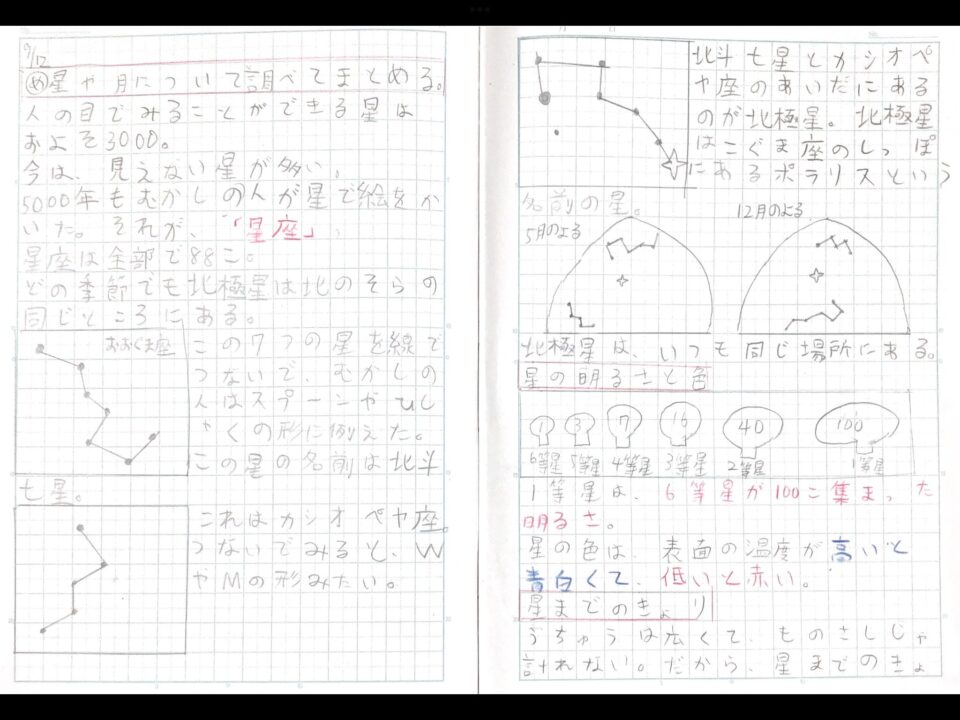 9/12
め星や月について調べてまとめる。
人の目でみることができる星は
およそ3000。
今は、見えない星が多い。
5000年もむかしの人が星で絵をか
いた。それが、「星座」。
星座は全部で88こ。
どの季節でも北極星は北のそらの
同じところにある。
おおぐま座
この7つの星を線で
つないで、むかしの
人はスプーンやひし
ゃくの形に例えた。
この星の名前は北斗
七星。
これはカシオペヤ座。
つないでみると、W
やMの形みたい。
北斗七星とカシオペ
ヤ座のあいだにある
のが北極星。北極星
はこぐま座のしっぽ
にあるポラリスという
名前の星。
5月のよる
12月のよる
北極星は、いつも同じ場所にある。
星の明るさと色
1 3 7 16 40 100
6等星 5等星 4等星 3等星 2等星 1等星
1等星は、6等星が100こ集まった
明るさ。
星の色は、表面の温度が高いと
青白くて、低いと赤い。
星までのきょり
うちゅうは広くて、ものさしじゃ
計れない。だから、星までのきょ